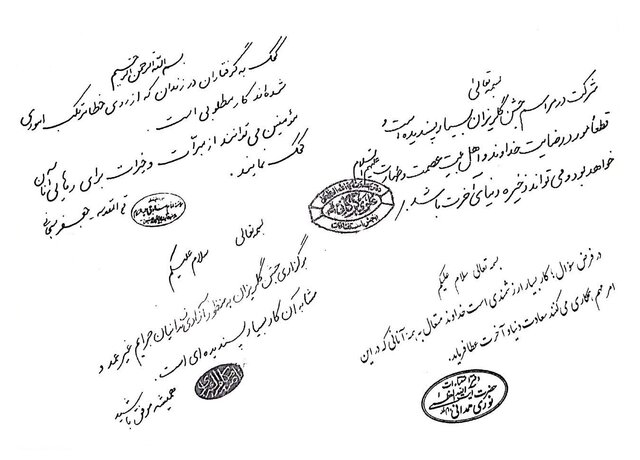 بسم الله الرحمن الرحیم
کمک به گرفتاران در زندان که از روی خطا مرتکب اموری
شده‌اند کار مطلوبی است.
مؤمنین می‌توانند از مبرّات و خیرات برای رهایی آنان به
کمک نمایند.
قم المقدسه - جعفر سبحانی
بسمه تعالی
شرکت در مراسم جشن گلریزان بسیار پسندیده است و
قطعاً مورد رضایت خداوند و اهل بیت عصمت و طهارت علیهم السلام
خواهد بود و می‌تواند ذخیره دنیا و آخرت باشد.
بسمه تعالی
سلام علیکم
برگزاری جشن گلریزان به منظور آزادی زندانیان جرایم غیر عمد و
مشابه آن کار بسیار پسندیده‌ای است.
همیشه موفق باشید
بسمه تعالی سلام علیکم
در فرض سؤال؛ کار بسیار ارزشمندی است خداوند متعال به همه آنانی که در این
امر مهم همکاری می‌کنند سعادت دنیا و آخرت عطا فرماید.
دفتر استفتاءات
حضرت آیت الله العظمی
نوری همدانی